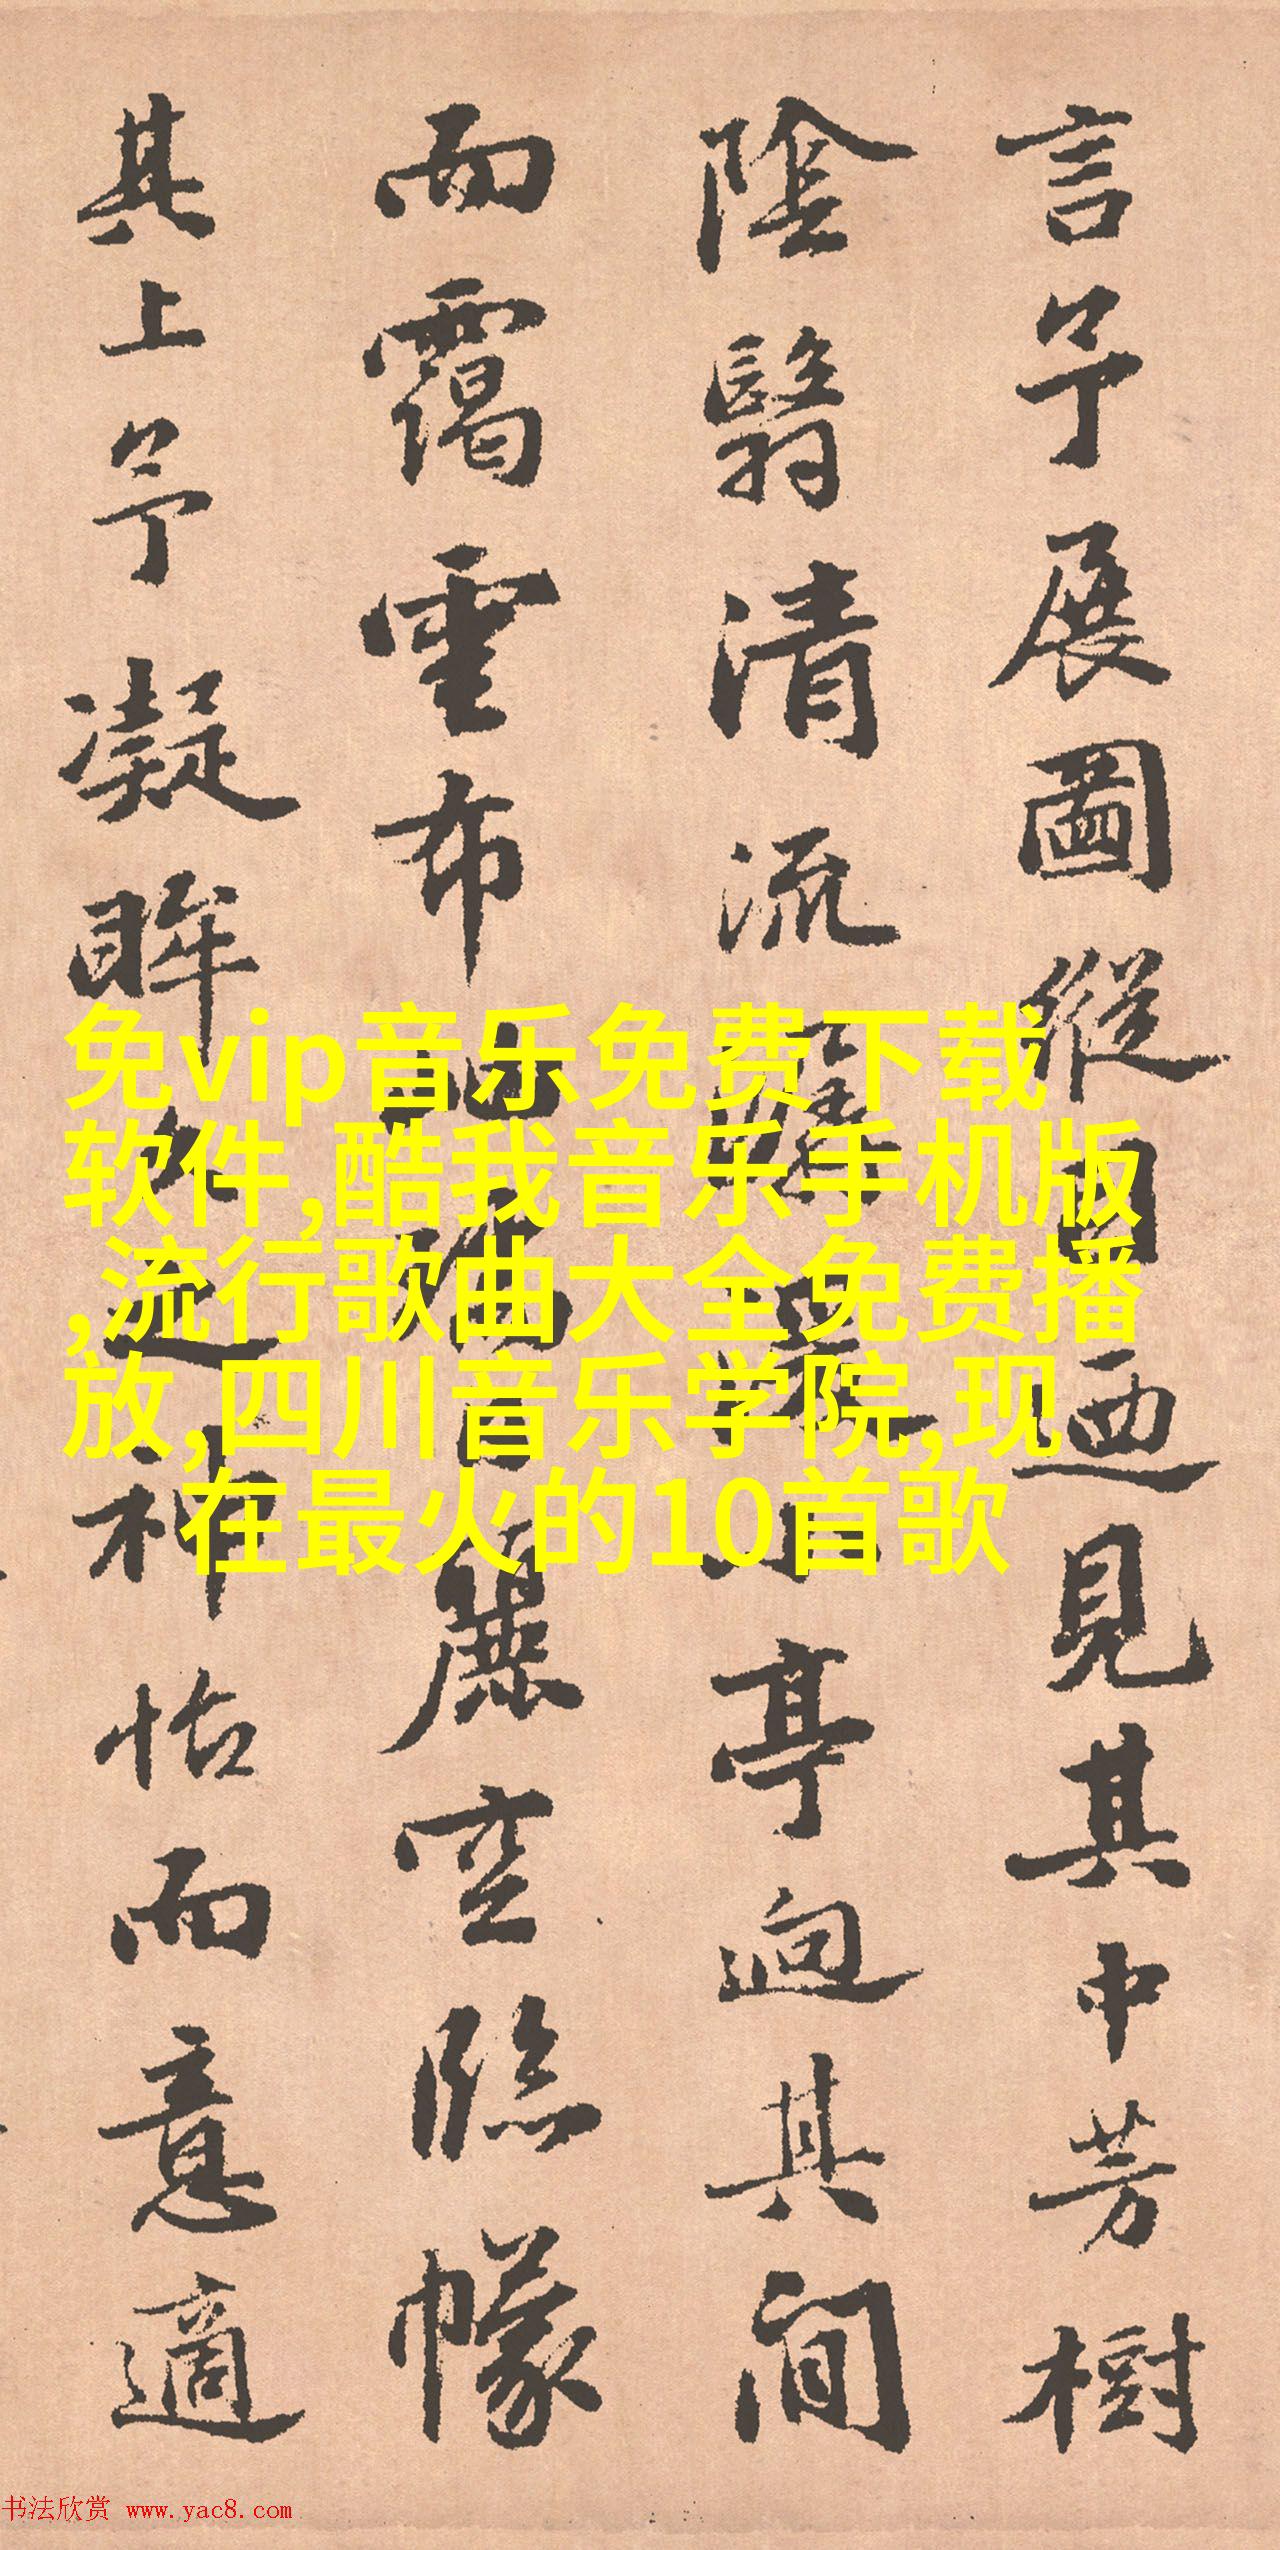 言予展圖縱目迺見其中芳樹
陰翳清流亭逈其間
而靄雲布麗空臨幪
其上予凝眸久之神怡而意適
免vip音乐免费下载
软件,酷我音乐手机版
,流行歌曲大全免费播
放,四川音乐学院,现
在最火的10首歌
书法欣赏 www.yac8.com